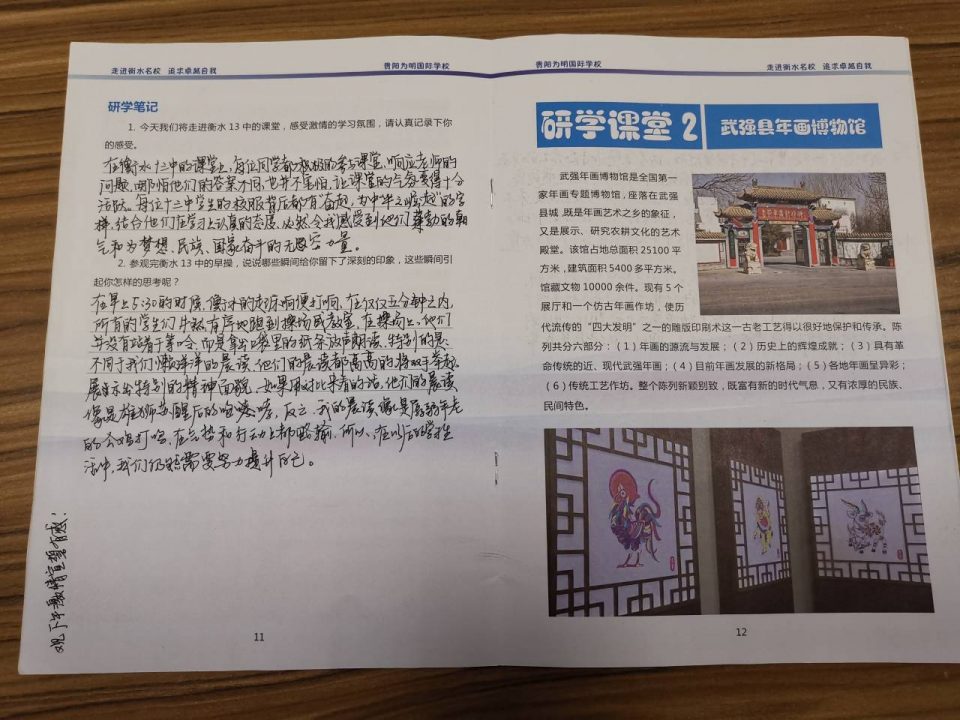 走进衡水名校 追求卓越自我
贵阳为明国际学校
研学笔记
1. 今天我们将走进衡水 13 中的课堂，感受激情的学习氛围，请认真记录下你
的感受。
在衡水十三中的课堂上，每位同学都积极的参与课堂，响应老师的
问题，哪怕他们的答案不同，也并不害怕，让课堂的气氛变得十分
活跃。每位十三中学生的校服背后都有
样，结合他们在学习上认真的态度，必然令我感受到他们蓬勃的朝
气和为梦想、民族、国家奋斗的无悬力量。
2. 参观完衡水 13 中的早操，说说哪些瞬间给你留下了深刻的印象，这些瞬间引
起你怎样的思考呢？
在早上5:30的时候，便打响，在仅仅五分钟之内，
所有的学生们井然有序地跑到操场，在操场上，他们
并没有站着干等
不同于我们懒洋洋的晨读，他们的晨读都高高的将双手举起，
展示出特别的精神面貌，如果用对比来看的话，他们的晨读
像是雄狮苏醒后的咆哮，反之，我的晨读像是年老
的公鸡打鸣，在气势和行动上都略输，所以，在以后的学程
活中，我们仍然需要努力提升自己。
观下午激情宣誓有感：
11
贵阳为明国际学校
走进衡水名校 追求卓越自我
研学课堂 2
武强县年画博物馆
武强年画博物馆是全国第一
家年画专题博物馆，座落在武强
县城，既是年画艺术之乡的象征，
又是展示、研究农耕文化的艺术
殿堂。该馆占地总面积 25100 平
方米，建筑面积 5400 多平方米。
馆藏文物 10000 余件。现有 5 个
展厅和一个仿古年画作坊，使历
代流传的“四大发明”之一的雕版印刷术这一古老工艺得以很好地保护和传承。陈
列共分六部分：（1）年画的源流与发展；（2）历史上的辉煌成就；（3）具有革
命传统的近、现代武强年画；（4）目前年画发展的新格局；（5）各地年画呈异彩；
（6）传统工艺作坊。整个陈列新颖别致，既富有新的时代气息，又有浓厚的民族、
民间特色。
12